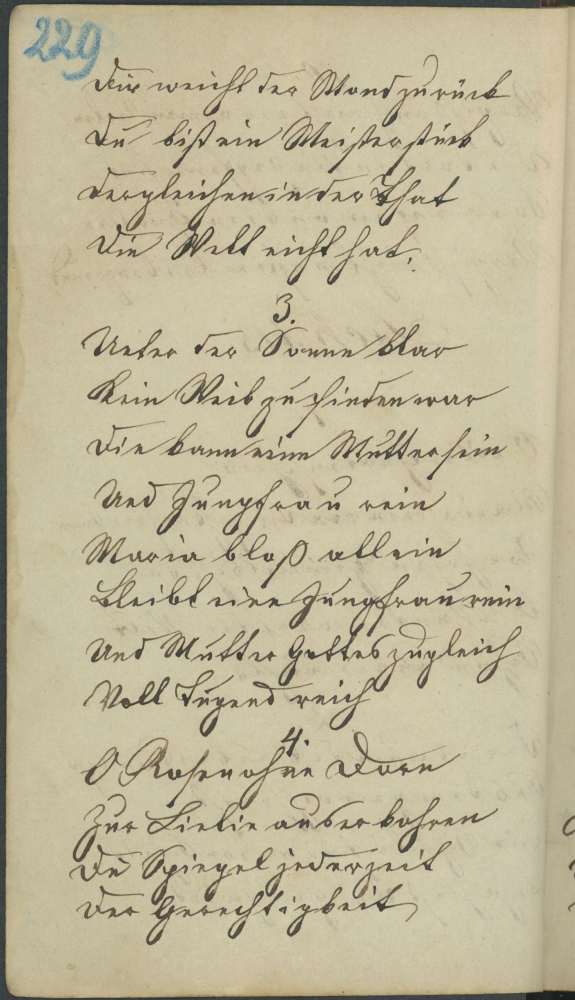 229
Dir weicht der Mond zurück
Du bist ein Meisterstück
Dergleichen in der That
Die Welt nicht hat.
3.
Unter der Sonne klar
Kein Weib zu finden war
Die kann eine Mutter sein
Und Jungfrau rein
Maria bloß allein
Bleibt eine Jungfrau rein
Und Mutter Gottes zugleich
Voll Tugend reich
4.
O Rosen ohne Dorn
Zur Lielie auserkohren
Du Spiegel jederzeit
Der Gerechtigkeit